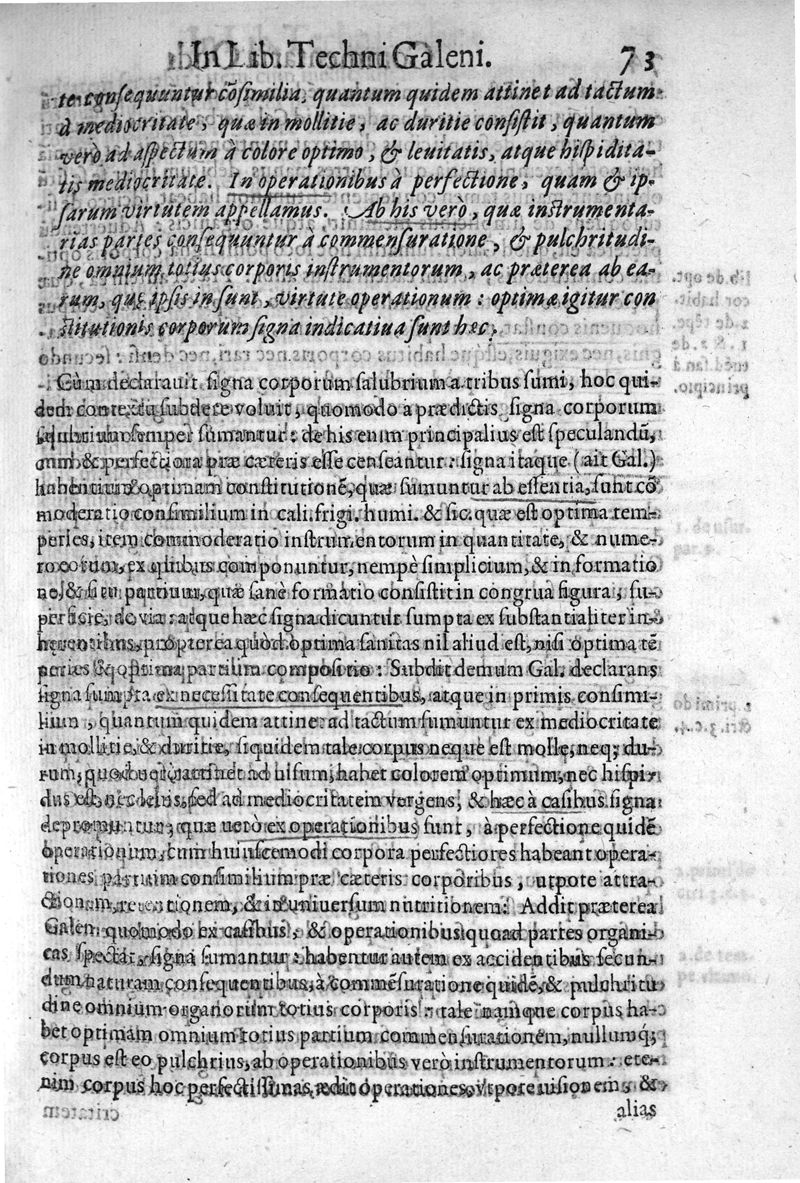 In Lib. Techni Galeni. 73
te consequuntur cõsimilia, quantum quidem attinet ad tactum
à mediocritate, quæ in mollitie, ac duritie consistit, quantum
verò ad aspectum à colore optimo, & leuitatis, atque hispidita-
tis mediocritate. In operationibus à perfectione, quam & ip-
sarum virtutem appellamus. Ab his verò, quæ instrumenta-
rias partes consequuntur à commensuratione, & pulchritudi-
ne omnium totius corporis instrumentorum, ac præterea ab ea-
rum, quę ipsis insunt, virtute operationum: optimæ igitur con
stitutionis corporum signa indicatiua sunt hæc.
Cùm declarauit signa corporum salubrium a tribus sumi, hoc qui-
dem contextu subdere voluit, quomodo a prædictis signa corporum
salubrium semper sumantur: de his enim principalius est speculandũ,
cum & perfectiora præ cæteris esse censeantur: signa itaque (ait Gal.)
habentium optimam constitutionẽ, quæ sumuntur ab essentia, sunt cõ
moderatio consimilium in cali. frigi. humi. & sic. quæ est optima tem-
peries, item commoderatio instrumentorum in quantitate, & nume-
ro eorum, ex quibus componuntur, nempè simplicium, & in formatio
ne, & situ partium, quæ sanè formatio consistit in congrua figura, su-
perficie, de via: atque hæc signa dicuntur sumpta ex substantialiter in-
hærentibus, propterea quòd optima sanitas nil aliud est, nisi optima tẽ
peries & optima partium compositio: Subdit demum Gal. declarans
signa sumpta ex necessitate consequentibus, atque in primis consimi-
lium, quantum quidem attinet ad tactum sumuntur ex mediocritate
in mollitie, & duritie, siquidem tale corpus neque est molle, neq; du-
rum, quod uerò attinet ad uisum, habet colorem optimum, nec hispi-
dus est, nec leuis, sed ad mediocritatem vergens, & hæc à casibus signa
depromuntur, quæ uerò ex operationibus sunt, à perfectione quidẽ
operationum, cum huiuscemodi corpora perfectiores habeant opera-
tiones partium consimilium præ cæteris corporibus, utpote attra-
ctionem, retentionem, & in uniuersum nutritionem: Addit præterea
Galen. quomodo ex casibus, & operationibus quoad partes organi-
cas spectat, signa sumantur: habentur autem ex accidentibus secun-
dum naturam consequentibus, à commẽsuratione quidẽ, & pulchritu
dine omnium organorum totius corporis: tale namque corpus ha-
bet optimam omnium totius partium commensurationem, nullumq;
corpus est eo pulchrius, ab operationibus verò instrumentorum: ete-
nim corpus hoc perfectissimas ædit operationes, vtpote uisionem, &
alias